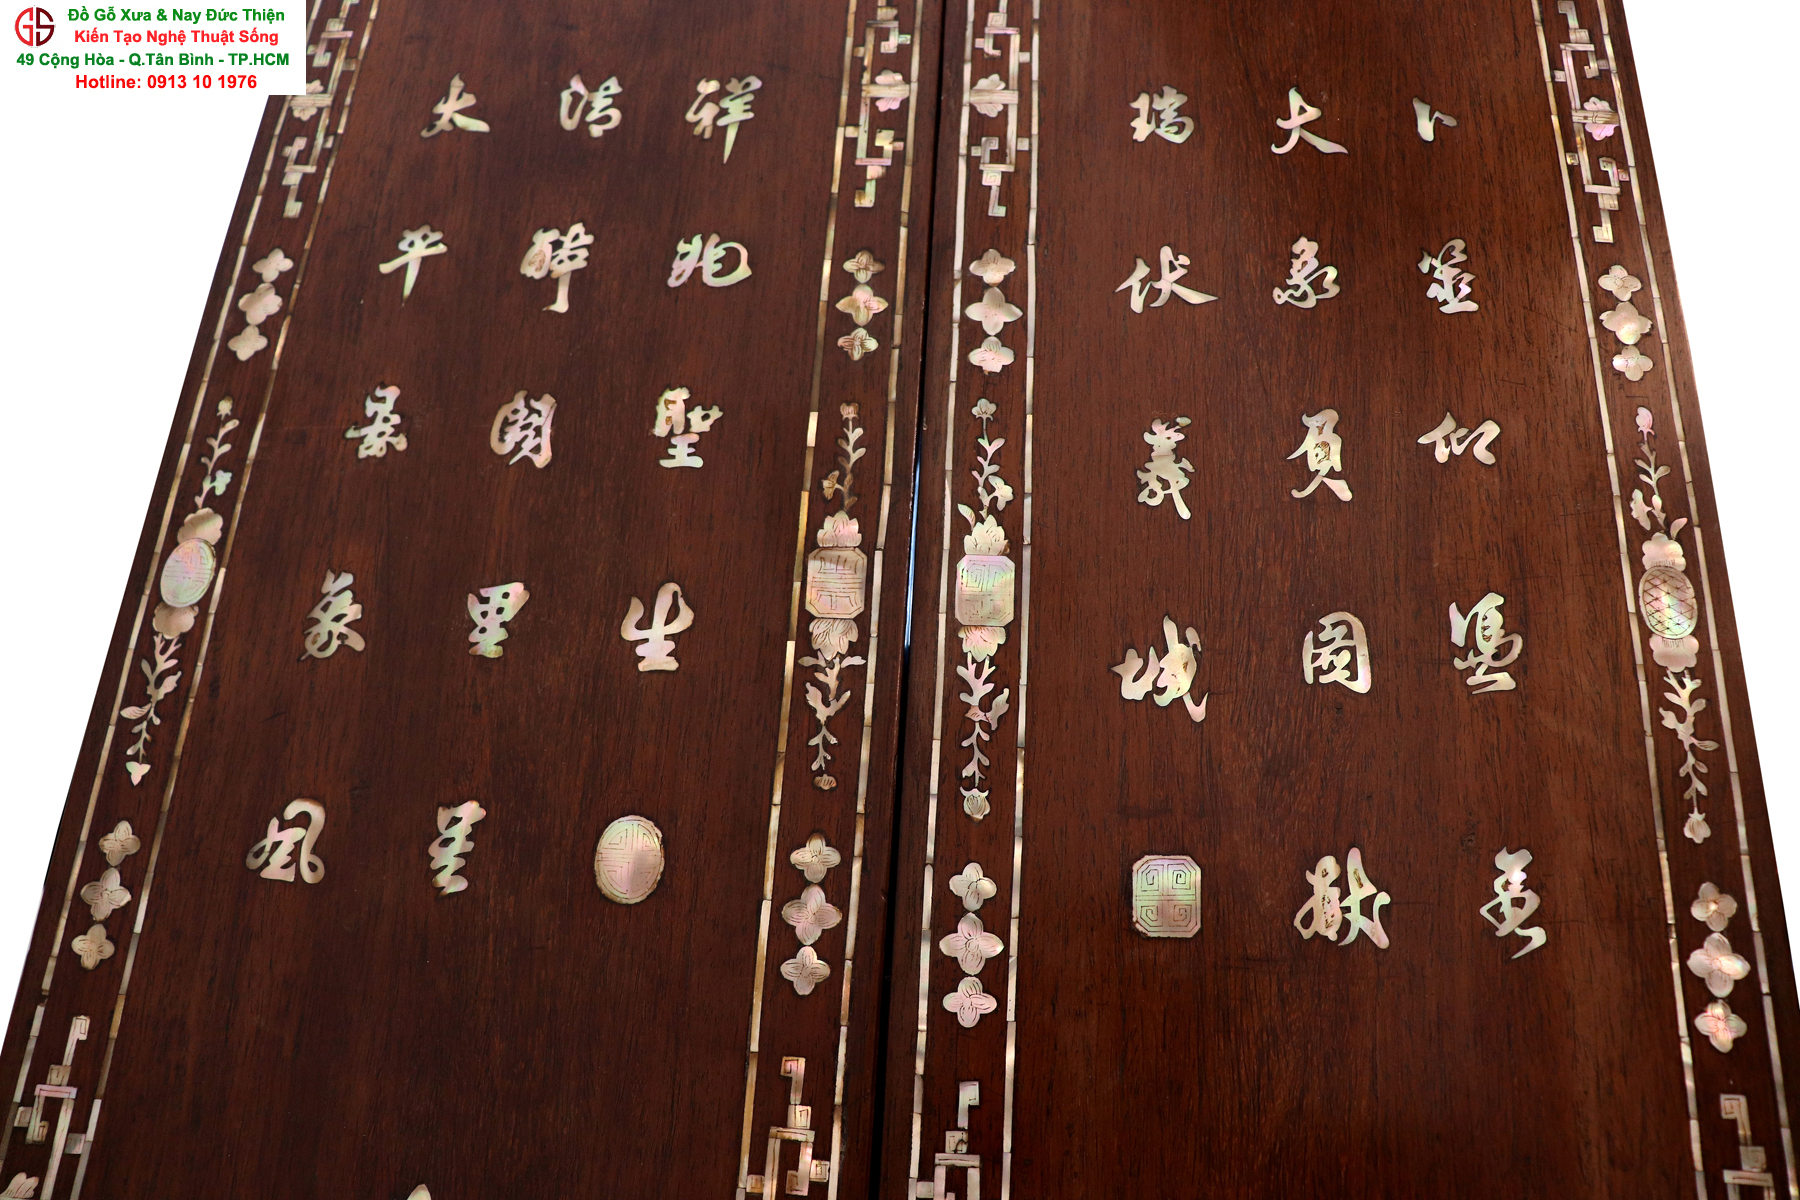 Đồ Gỗ Xưa & Nay Đức Thiện
Kiến Tạo Nghệ Thuật Sống
49 Cộng Hòa - Q.Tân Bình - TP.HCM
Hotline: 0913 10 1976
卜筮仰
大象負圖獻
瑞伏羲城
祥兆聖生
清闕里呈
太平景象風